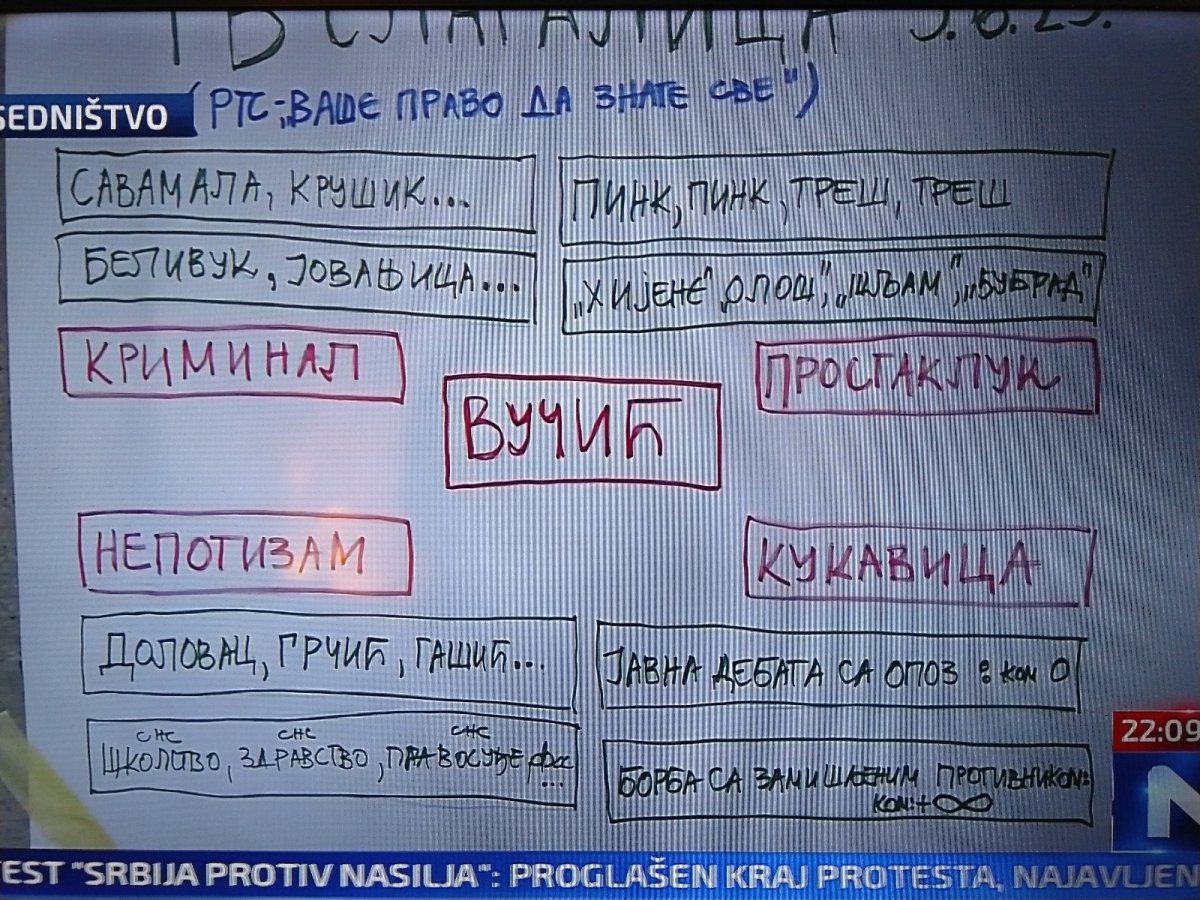 ТВ СЛАГАЛИЦА 3.6.23.
SEDNIŠTVO
(РТС-„ВАШЕ ПРАВО ДА ЗНАТЕ СВЕ")
САВАМАЛА, КРУШИК...
ПИНК, ПИНК, ТРЕШ, ТРЕШ
БЕЛИВУК, ЈОВАЊИЦА...
„ХИЈЕНЕ", ОЛОШ", „ШЉАМ", „БУБРАД"
КРИМИНАЛ
ПРОСТАКЛУК
ВУЧИЋ
НЕПОТИЗАМ
КУКАВИЦА
ДОЛОВАЦ, ГРЧИЋ, ГАШИЋ...
ЈАВНА ДЕБАТА СА ОПОЗ : КОМ 0
СНС СНС СНС
ШКОЛСТВО, ЗДРАВСТВО, ПРАВОСУЂЕ
...
БОРБА СА ЗАМИШЉЕНИМ ПРОТИВНИКОМ:
КОМ:+∞
22:09
N
TEST "SRBIJA PROTIV NASILJA": PROGLAŠEN KRAJ PROTESTA, NAJAVLJEN